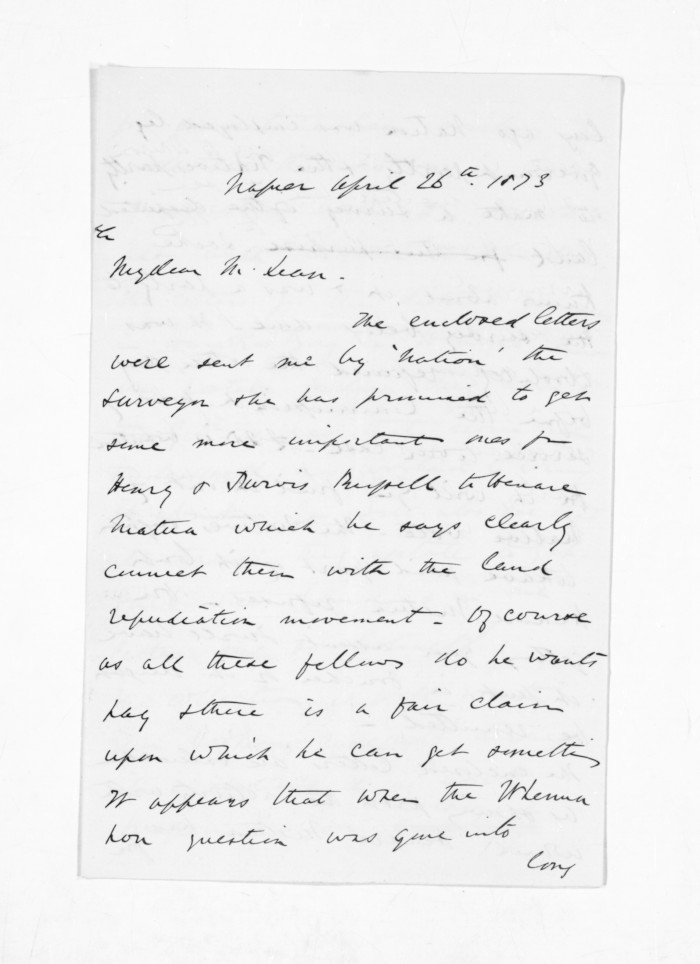 Napier April 26th. 1873
My dear McLean.
The enclosed letters
were sent me by 'Nation' the
surveyor & he has promised to get
some more important ones fr
Henry & Purvis Russell to Henare
Matua which he says clearly
connect them with the land
repudiation movement - Of course
as all these fellows do he wants
pay & there is a fair claim
upon which he can get something
It appears that when the Whenua
hou question was gone into
long